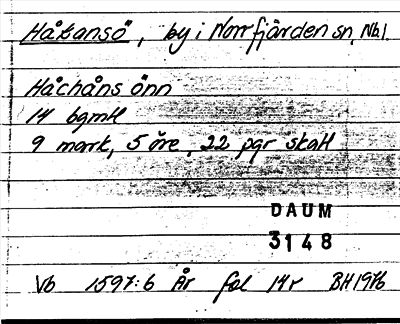 Håkansö, by i Norrfjärden sn, Nb.l.
Håchåns önn
14 bgmtl
9 mark, 5 öre, 22 pgr skatt
DAUM
3148
Vb 1597:6 År fol 14r BH1976